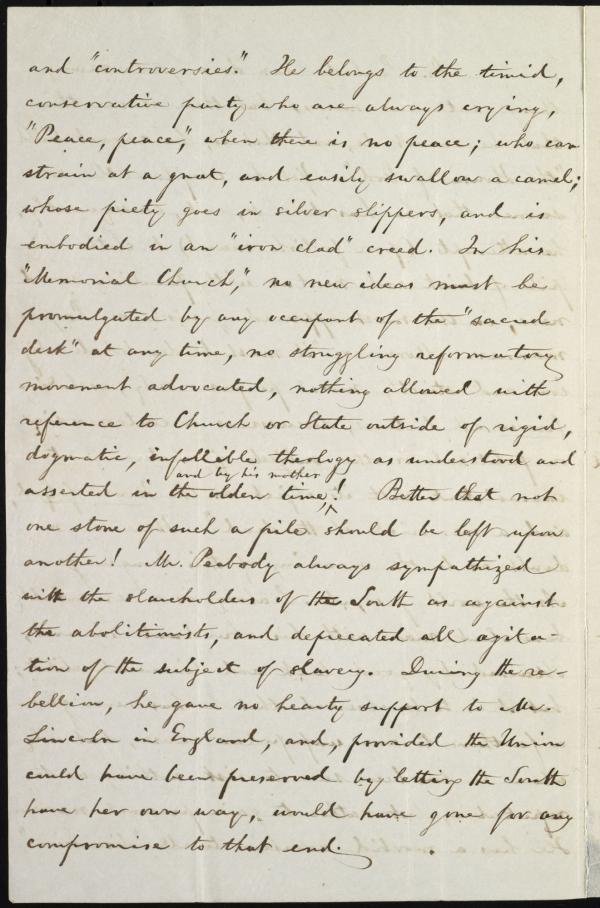 and "controversies." He belongs to the timid,
conservative party who are always crying,
"Peace, peace," when there is no peace; who can
strain at a gnat, and easily swallow a camel;
whose piety goes in silver slippers, and is
embodied in an "iron clad" creed. In his
"Memorial Church," no new ideas must be
promulgated by any occupant of the "sacred
desk" at any time, no struggling reformatory
movement advocated, nothing allowed with
reference to Church or State outside of rigid,
dogmatic, infallible theology as understood and
and by his mother
asserted in the olden time,^! Better that not
one stone of such a pile should be left upon
another! Mr. Peabody always sympathized
with the slaveholders of the South as against
the abolitionists, and deprecated all agita-
tion of the subject of slavery. During the re-
bellion, he gave no hearty support to Mr.
Lincoln in England, and, provided the Union
could have been preserved by letting the South
have her own way, would have gone for any
compromise to that end.